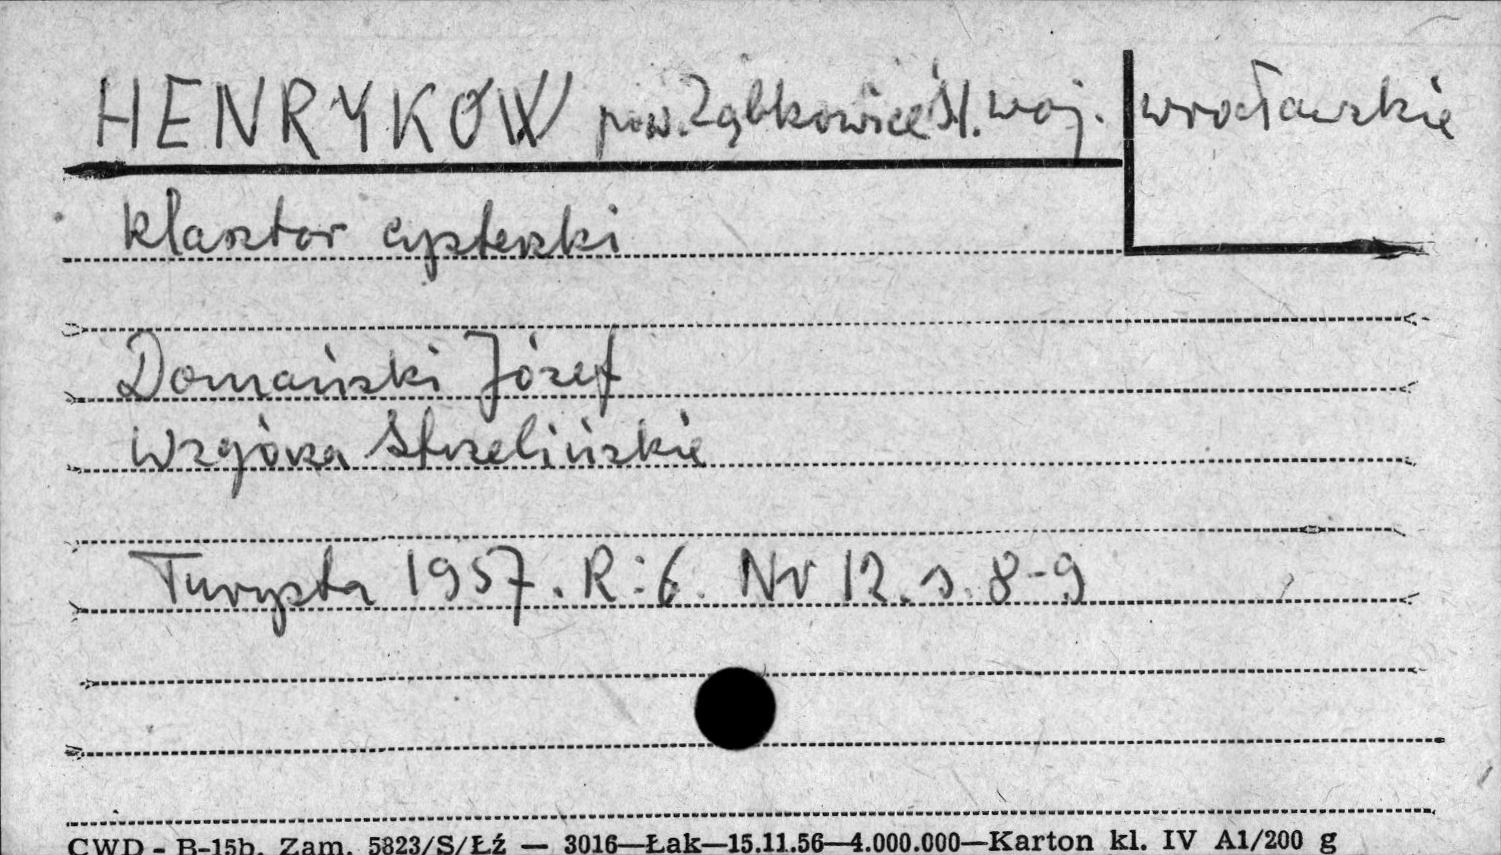 HENRYKÓW pow. Ząbkowice Śl. woj. wrocławskie
klasztor cysterski
Domański Józef
Wzgórza Strzelińskie
Turysta 1957. R:6. Nr 12. s. 8-9
CWD - B-15b. Zam. 5823/S/Łź — 3016—Łak—15.11.56—4.000.000—Karton kl. IV A1/200 g